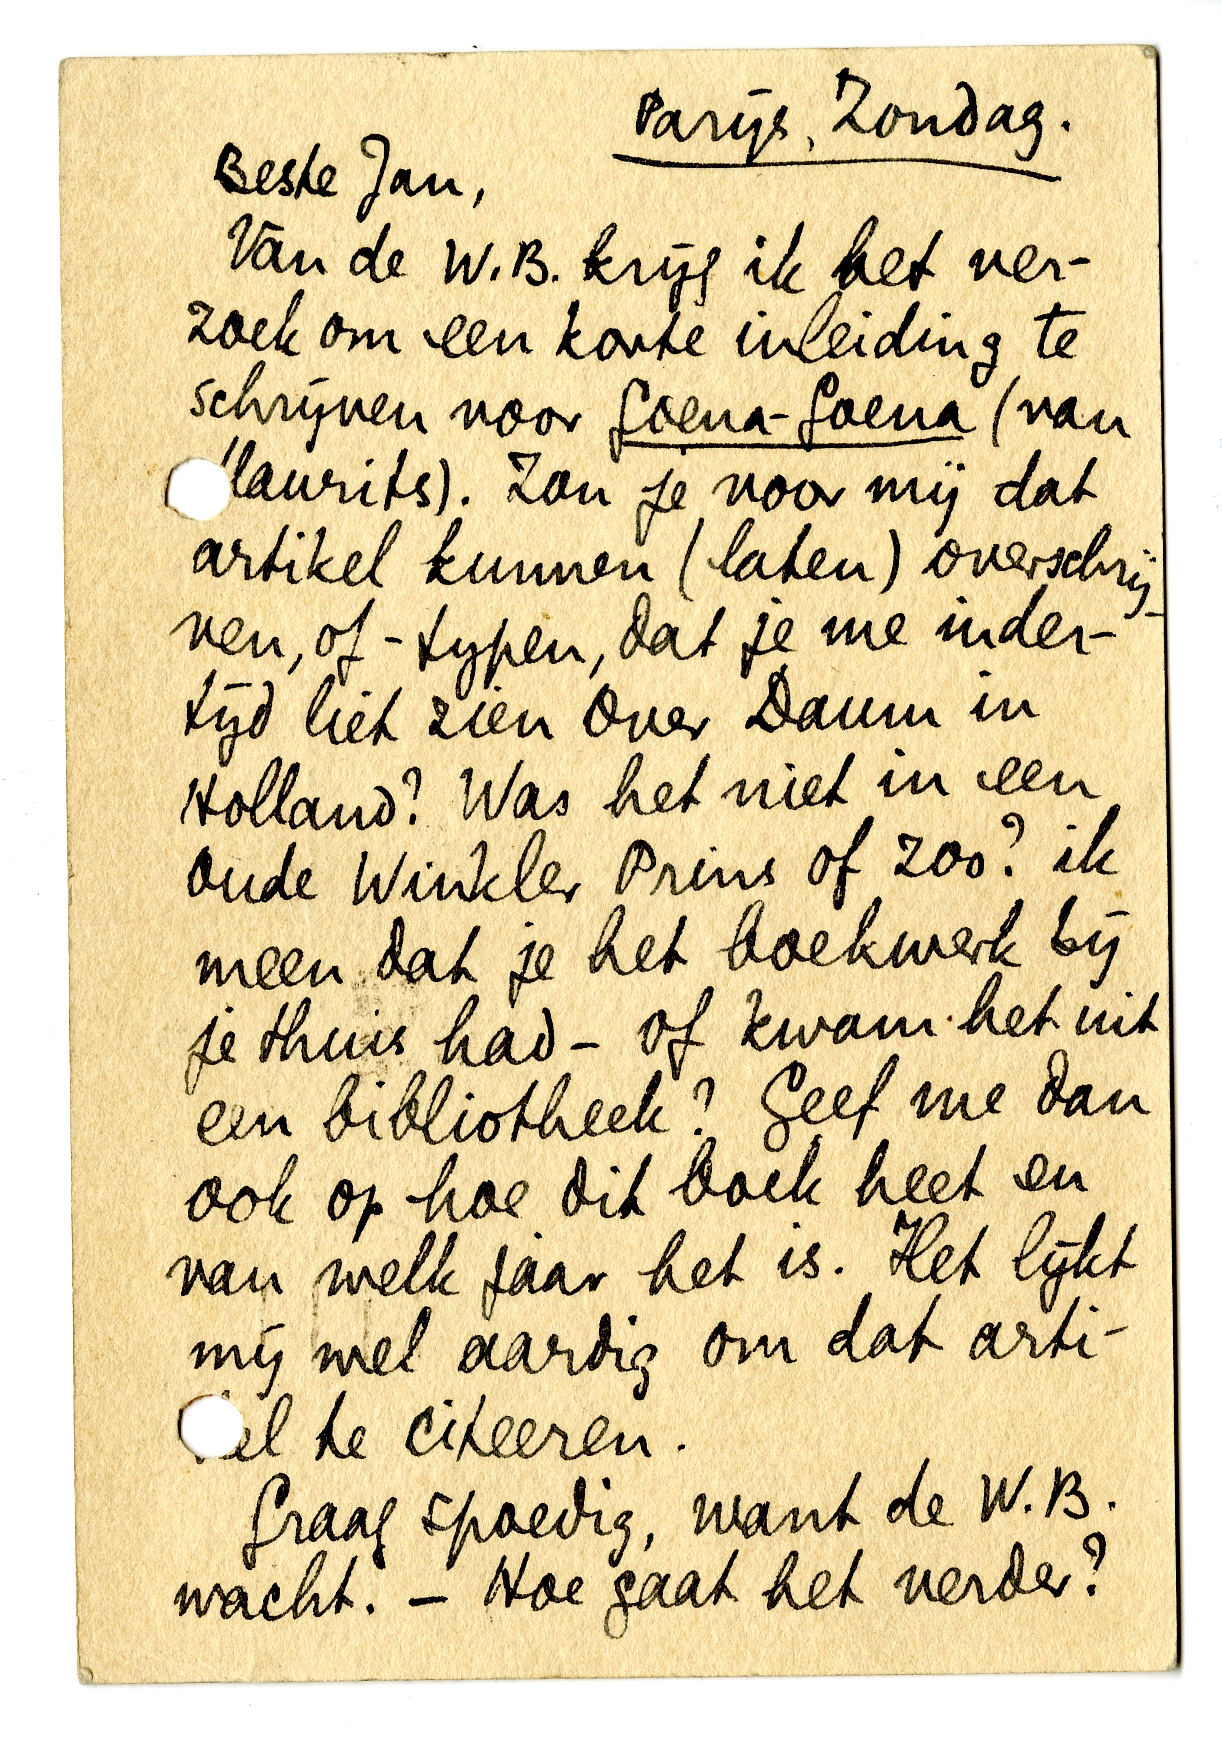 Parijs, Zondag.
Beste Jan,
Van de W.B. krijg ik het ver-
zoek om een korte inleiding te
schrijven voor Goena-Goena (van
Maurits). Zou je voor mij dat
artikel kunnen (laten) overschrij-
ven, of -typen, dat je me inder-
tijd liet zien over Daum in
Holland? Was het niet in een
oude Winkler Prins of zoo? ik
meen dat je het boekwerk bij
je thuis had - of kwam het uit
een bibliotheek? Geef me dan
ook op hoe dit boek heet en
van welk jaar het is. Het lijkt
mij wel aardig om dat arti-
kel te citeeren.
Graag spoedig, want de W.B.
wacht. - Hoe gaat het verder?